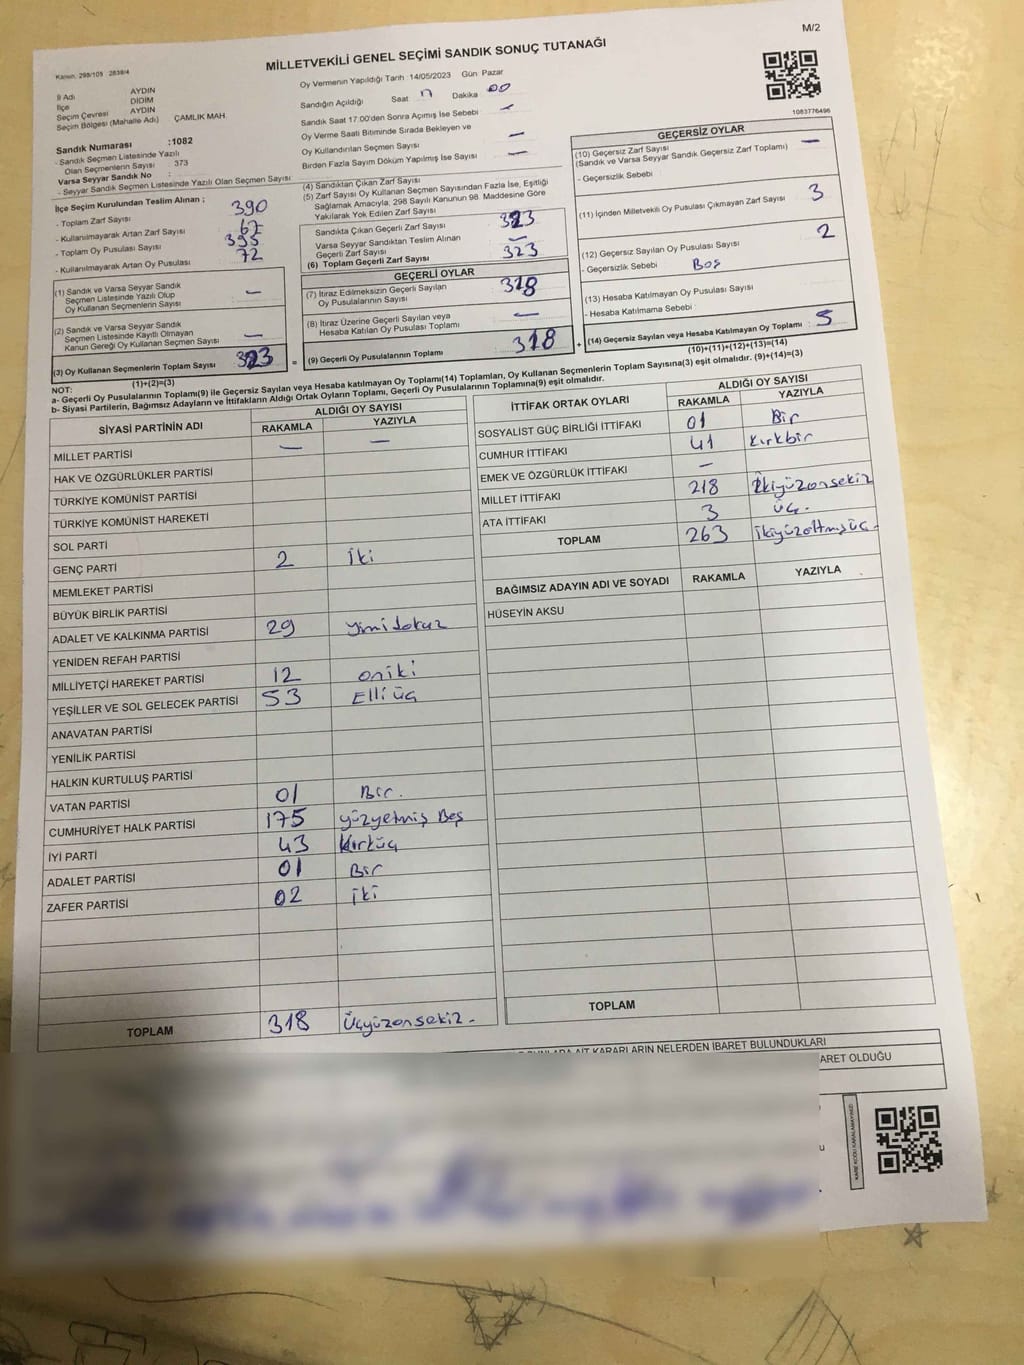 M/2
MİLLETVEKİLİ GENEL SEÇİMİ SANDIK SONUÇ TUTANAĞI
Kanun. 298/109 2839/4
İl Adı AYDIN
İlçe DİDİM
Seçim Çevresi AYDIN
Seçim Bölgesi (Mahalle Adı) ÇAMLIK MAH.
Sandık Numarası :1082
- Sandık Seçmen Listesinde Yazılı
Olan Seçmenlerin Sayısı : 373
Varsa Seyyar Sandık No :
- Seyyar Sandık Seçmen Listesinde Yazılı Olan Seçmen Sayısı:
Oy Vermenin Yapıldığı Tarih :14/05/2023 Gün Pazar
Sandığın Açıldığı Saat 17 Dakika 00
Sandık Saat 17:00'den Sonra Açımış İse Sebebi —
Oy Verme Saati Bitiminde Sırada Bekleyen ve
Oy Kullandırılan Seçmen Sayısı —
Birden Fazla Sayım Döküm Yapılmış İse Sayısı —
1083776496
İlçe Seçim Kurulundan Teslim Alınan ;
- Toplam Zarf Sayısı 390
- Kullanılmayarak Artan Zarf Sayısı 67
- Toplam Oy Pusulası Sayısı 395
- Kullanılmayarak Artan Oy Pusulası 72
(1) Sandık ve Varsa Seyyar Sandık
Seçmen Listesinde Yazılı Olup
Oy Kullanan Seçmenlerin Sayısı —
(2) Sandık ve Varsa Seyyar Sandık
Seçmen Listesinde Kayıtlı Olmayan
Kanun Gereği Oy Kullanan Seçmen Sayısı —
(3) Oy Kullanan Seçmenlerin Toplam Sayısı 323
(1)+(2)=(3)
(4) Sandıktan Çıkan Zarf Sayısı
(5) Zarf Sayısı Oy Kullanan Seçmen Sayısından Fazla İse, Eşitliği
Sağlamak Amacıyla, 298 Sayılı Kanunun 98. Maddesine Göre
Yakılarak Yok Edilen Zarf Sayısı
Sandıkta Çıkan Geçerli Zarf Sayısı 323
Varsa Seyyar Sandıktan Teslim Alınan
Geçerli Zarf Sayısı —
(6) Toplam Geçerli Zarf Sayısı 323
GEÇERLİ OYLAR
(7) İtiraz Edilmeksizin Geçerli Sayılan
Oy Pusulalarının Sayısı 318
(8) İtiraz Üzerine Geçerli Sayılan veya
Hesaba Katılan Oy Pusulası Toplamı —
= (9) Geçerli Oy Pusulalarının Toplamı 318
GEÇERSİZ OYLAR
(10) Geçersiz Zarf Sayısı —
(Sandık ve Varsa Seyyar Sandık Geçersiz Zarf Toplamı)
- Geçersizlik Sebebi :
(11) İçinden Milletvekili Oy Pusulası Çıkmayan Zarf Sayısı 3
(12) Geçersiz Sayılan Oy Pusulası Sayısı 2
- Geçersizlik Sebebi : Boş
(13) Hesaba Katılmayan Oy Pusulası Sayısı
- Hesaba Katılmama Sebebi :
+ (14) Geçersiz Sayılan veya Hesaba Katılmayan Oy Toplamı 5
(10)+(11)+(12)+(13)=(14)
NOT:
a- Geçerli Oy Pusulalarının Toplamı(9) ile Geçersiz Sayılan veya Hesaba katılmayan Oy Toplamı(14) Toplamları, Oy Kullanan Seçmenlerin Toplam Sayısına(3) eşit olmalıdır. (9)+(14)=(3)
b- Siyasi Partilerin, Bağımsız Adayların ve İttifakların Aldığı Ortak Oyların Toplamı, Geçerli Oy Pusulalarının Toplamına(9) eşit olmalıdır.
SİYASİ PARTİNİN ADI ALDIĞI OY SAYISI
RAKAMLA YAZIYLA
MİLLET PARTİSİ — —
HAK VE ÖZGÜRLÜKLER PARTİSİ
TÜRKİYE KOMÜNİST PARTİSİ
TÜRKİYE KOMÜNİST HAREKETİ
SOL PARTİ
GENÇ PARTİ 2 iki
MEMLEKET PARTİSİ
BÜYÜK BİRLİK PARTİSİ
ADALET VE KALKINMA PARTİSİ 29 yirmidokuz
YENİDEN REFAH PARTİSİ
MİLLİYETÇİ HAREKET PARTİSİ 12 oniki
YEŞİLLER VE SOL GELECEK PARTİSİ 53 Elliüç
ANAVATAN PARTİSİ
YENİLİK PARTİSİ
HALKIN KURTULUŞ PARTİSİ
VATAN PARTİSİ 01 Bir.
CUMHURİYET HALK PARTİSİ 175 yüzyetmiş Beş
İYİ PARTİ 43 kırküç
ADALET PARTİSİ 01 Bir
ZAFER PARTİSİ 02 iki
TOPLAM 318 üçyüzonsekiz.
İTTİFAK ORTAK OYLARI ALDIĞI OY SAYISI
RAKAMLA YAZIYLA
SOSYALİST GÜÇ BİRLİĞİ İTTİFAKI 01 Bir
CUMHUR İTTİFAKI 41 kırkbir
EMEK VE ÖZGÜRLÜK İTTİFAKI —
MİLLET İTTİFAKI 218 ikiyüzonsekiz
ATA İTTİFAKI 3 üç.
TOPLAM 263 ikiyüzaltmışüç.
BAĞIMSIZ ADAYIN ADI VE SOYADI RAKAMLA YAZIYLA
HÜSEYİN AKSU
TOPLAM
AİT KARARLARIN NELERDEN İBARET BULUNDUKLARI
ARET OLDUĞU
KARE KODU KARALAMAYINIZ!